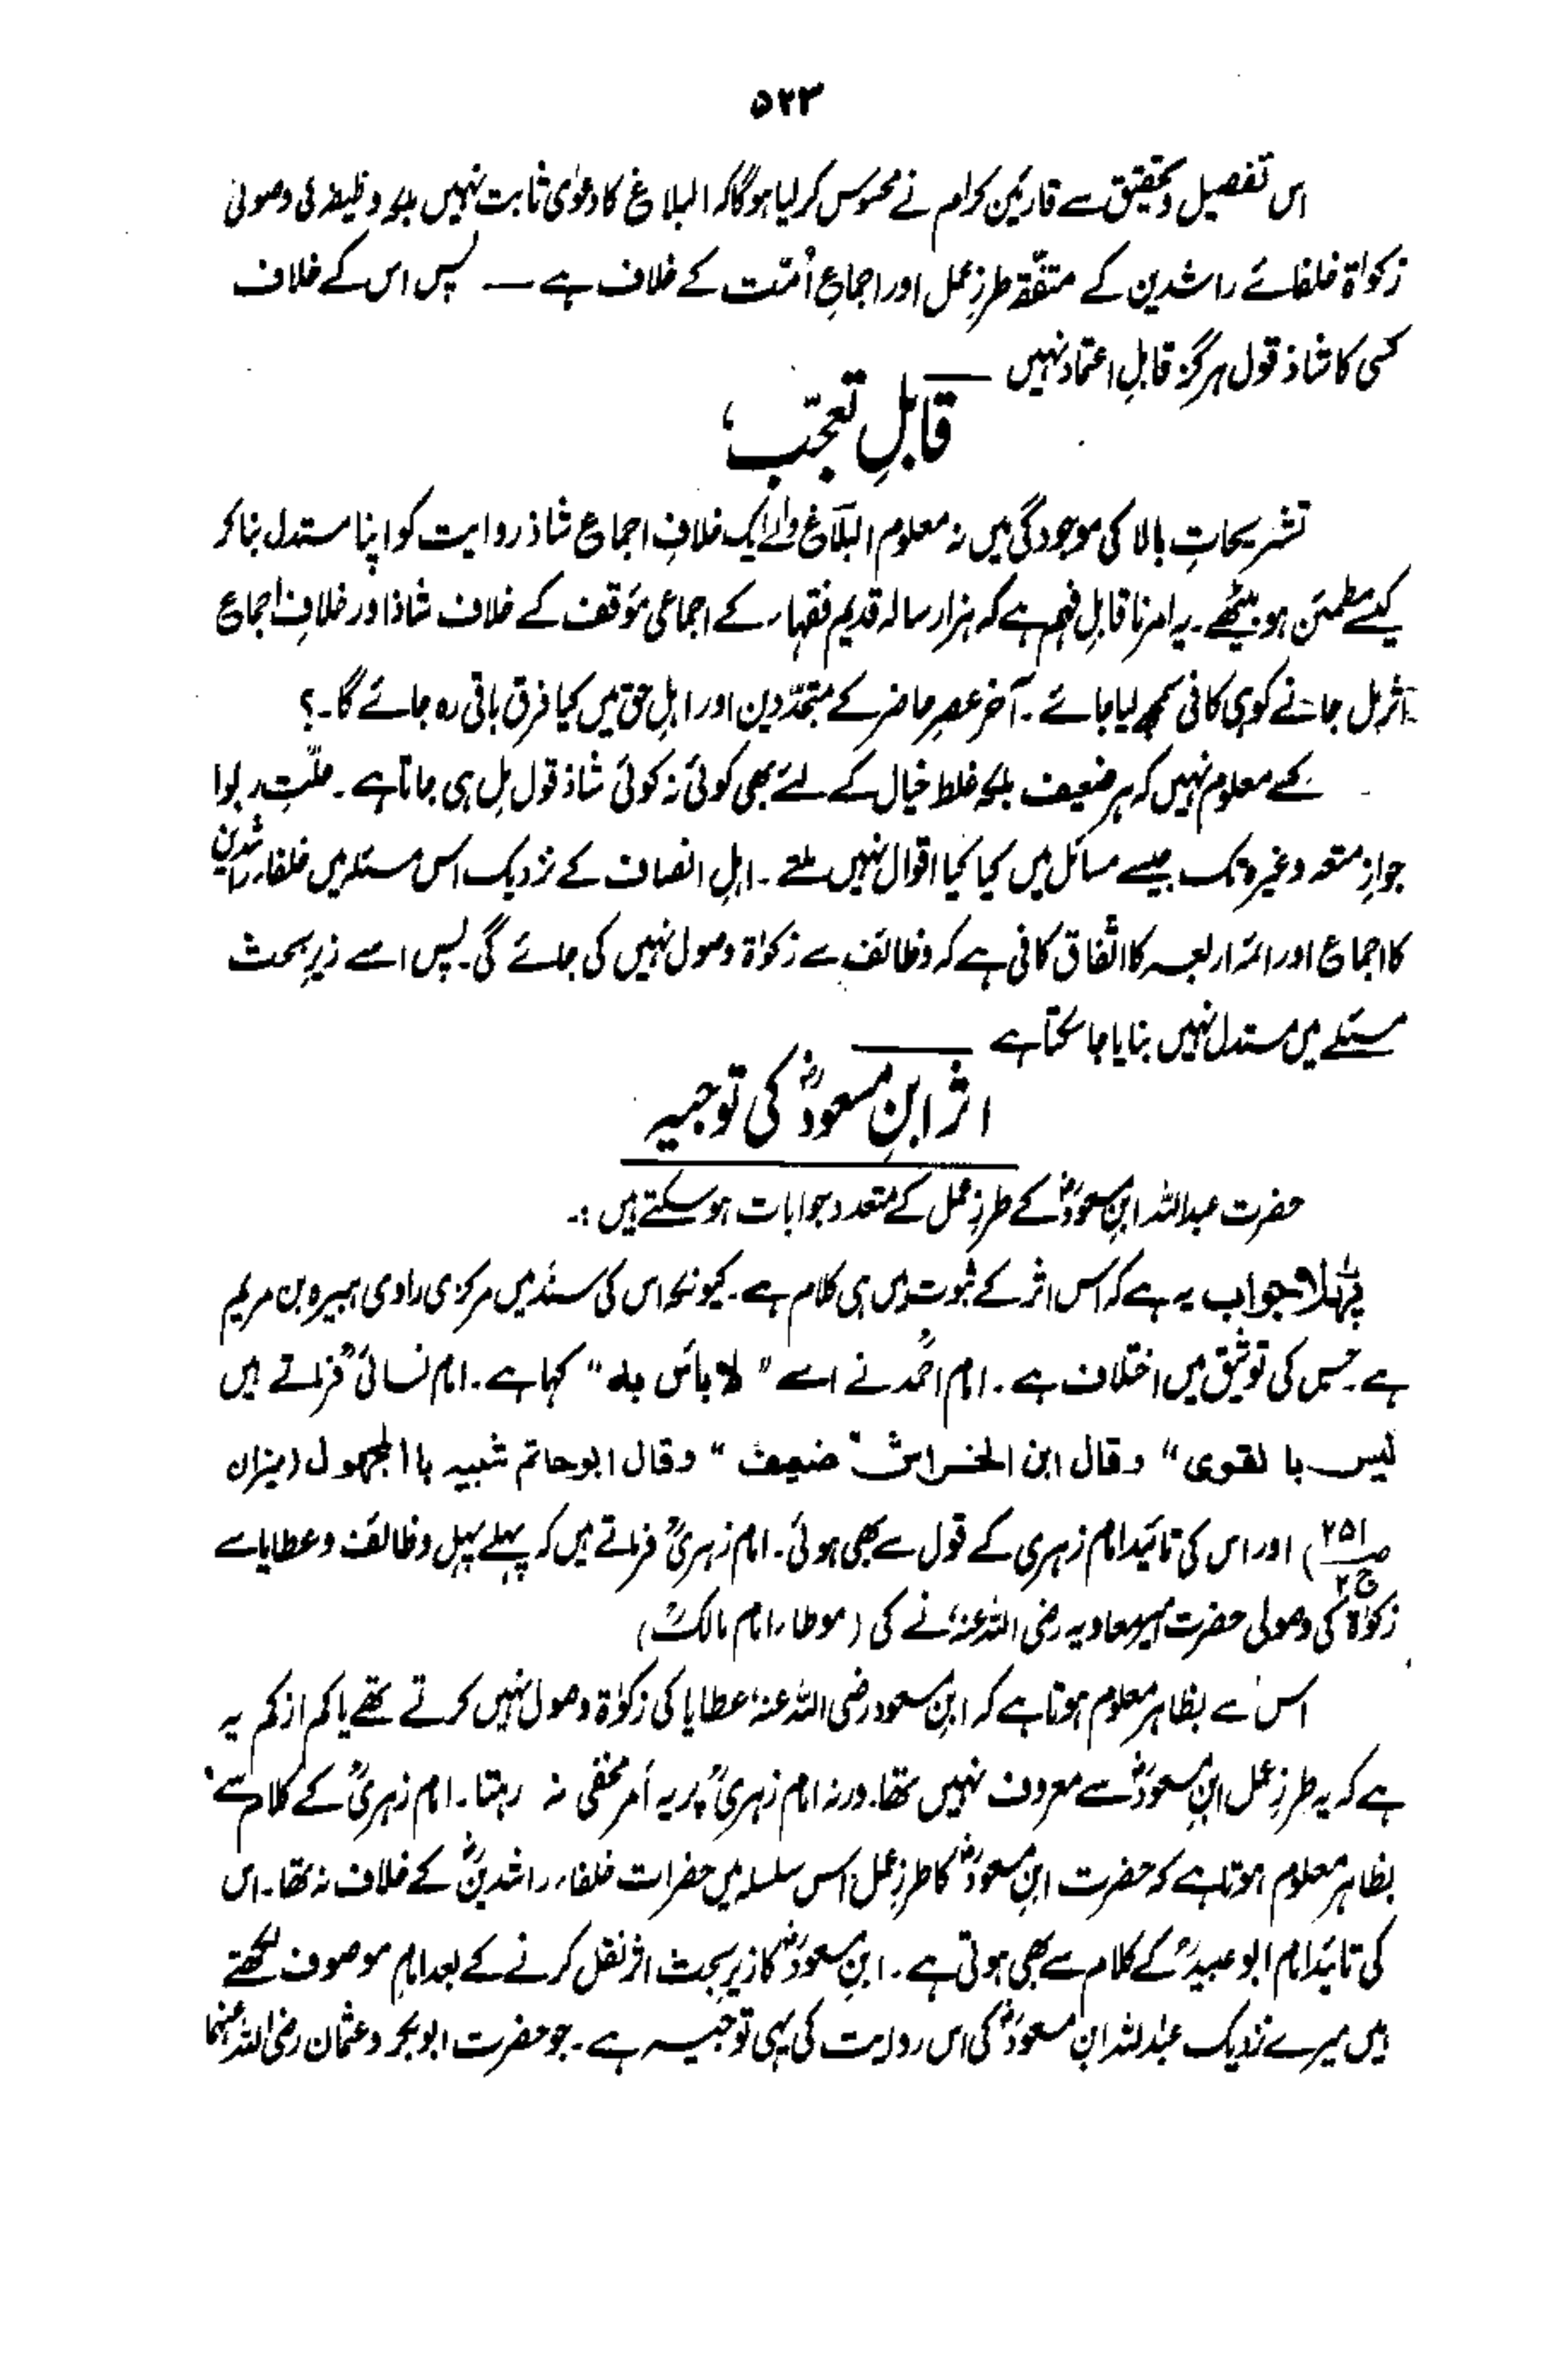 ۵۲۳
اس تفصیل و تحقیق سے قارئین کرام نے محسوس کرلیا ہوگا کہ البلاغ کا دعوٰی ثابت نہیں بلکہ وظیفہ کی وصولی
زکوٰۃ خلفائے راشدین کے متفقہ طرزِ عمل اور اجماعِ اُمّت کے خلاف ہے — پس اس کے خلاف
کسی کا شاذ قول ہرگز قابلِ اعتماد نہیں —
قابلِ تعجّب ؛
تشریحاتِ بالا کی موجودگی میں نہ معلوم البلاغ والے ایک خلافِ اجماع شاذ روایت کو اپنا مستدل بنا کر
کیسے مطمئن ہو بیٹھے۔ یہ امر ناقابلِ فہم ہے کہ ہزار سالہ قدیم فقہاء کے اجماعی مؤقف کے خلاف شاذ اور خلافِ اجماع
اثر مل جانے کو ہی کافی سمجھ لیا جائے۔ آخر عصرِ حاضر کے متجدّدین اور اہلِ حق میں کیا فرق باقی رہ جائے گا۔؟
کسے معلوم نہیں کہ ہر ضعیف بلکہ غلط خیال کے لئے بھی کوئی نہ کوئی شاذ قول مِل ہی جاتا ہے۔ حلّتِ ربوا
جوازِ متعہ وغیرہ تک جیسے مسائل میں کیا کیا اقوال نہیں ملتے۔ اہلِ انصاف کے نزدیک اس مسئلہ میں خلفاء راشدین
کا اجماع اور ائمہ اربعہ کا اتفاق کافی ہے کہ وظائف سے زکوٰۃ وصول نہیں کی جائے گی۔ پس اسے زیرِ بحث
مسئلے میں مستدل نہیں بنایا جا سکتا ہے —
اثر ابنِ مسعودؓ کی توجیہ
حضرت عبداللہ ابنِ مسعودؓ کے طرزِ عمل کے متعدد جوابات ہو سکتے ہیں :۔
پہلا جواب یہ ہے کہ اس اثر کے ثبوت میں ہی کلام ہے۔ کیونکہ اس کی سند میں مرکزی راوی ہبیرہ بن مریم
ہے جس کی توثیق میں اختلاف ہے۔ امام احمدؒ نے اسے "لا بأس به" کہا ہے۔ امام نسائیؒ فرماتے ہیں
لیس با لقوی" وقال ابن الخراش "ضعیف" وقال ابو حاتم شبیہ با المجہول (میزان
صـ۲۵۱ ج۲) اور اس کی تائید امام زہری کے قول سے بھی ہوئی۔ امام زہریؒ فرماتے ہیں کہ پہلے پہل وظائف و عطایا سے
زکوٰۃ کی وصولی حضرت امیر معاویہ رضی اللہ عنہٗ نے کی (موطاء امام مالکؒ)
اس سے بظاہر معلوم ہوتا ہے کہ ابنِ مسعود رضی اللہ عنہٗ عطایا کی زکوٰۃ وصول نہیں کرتے تھے یا کم از کم یہ
ہے کہ یہ طرزِ عمل ابنِ مسعودؓ سے معروف نہیں تھا۔ ورنہ امام زہریؒ پر یہ اَمر مخفی نہ رہتا۔ امام زہریؒ کے کلام سے
بظاہر معلوم ہوتا ہے کہ حضرت ابنِ مسعودؓ کا طرزِ عمل اس سلسلہ میں حضرات خلفاء راشدینؓ کے خلاف نہ تھا۔ اس
کی تائید امام ابو عبیدؒ کے کلام سے بھی ہوتی ہے۔ ابنِ مسعودؓ کا زیرِ بحث اثر نقل کرنے کے بعد امام موصوف لکھتے
ہیں میرے نزدیک عبداللہ ابن مسعودؓ کی اس روایت کی یہی توجیہ ہے۔ جو حضرت ابو بکر و عثمان رضی اللہ عنہما